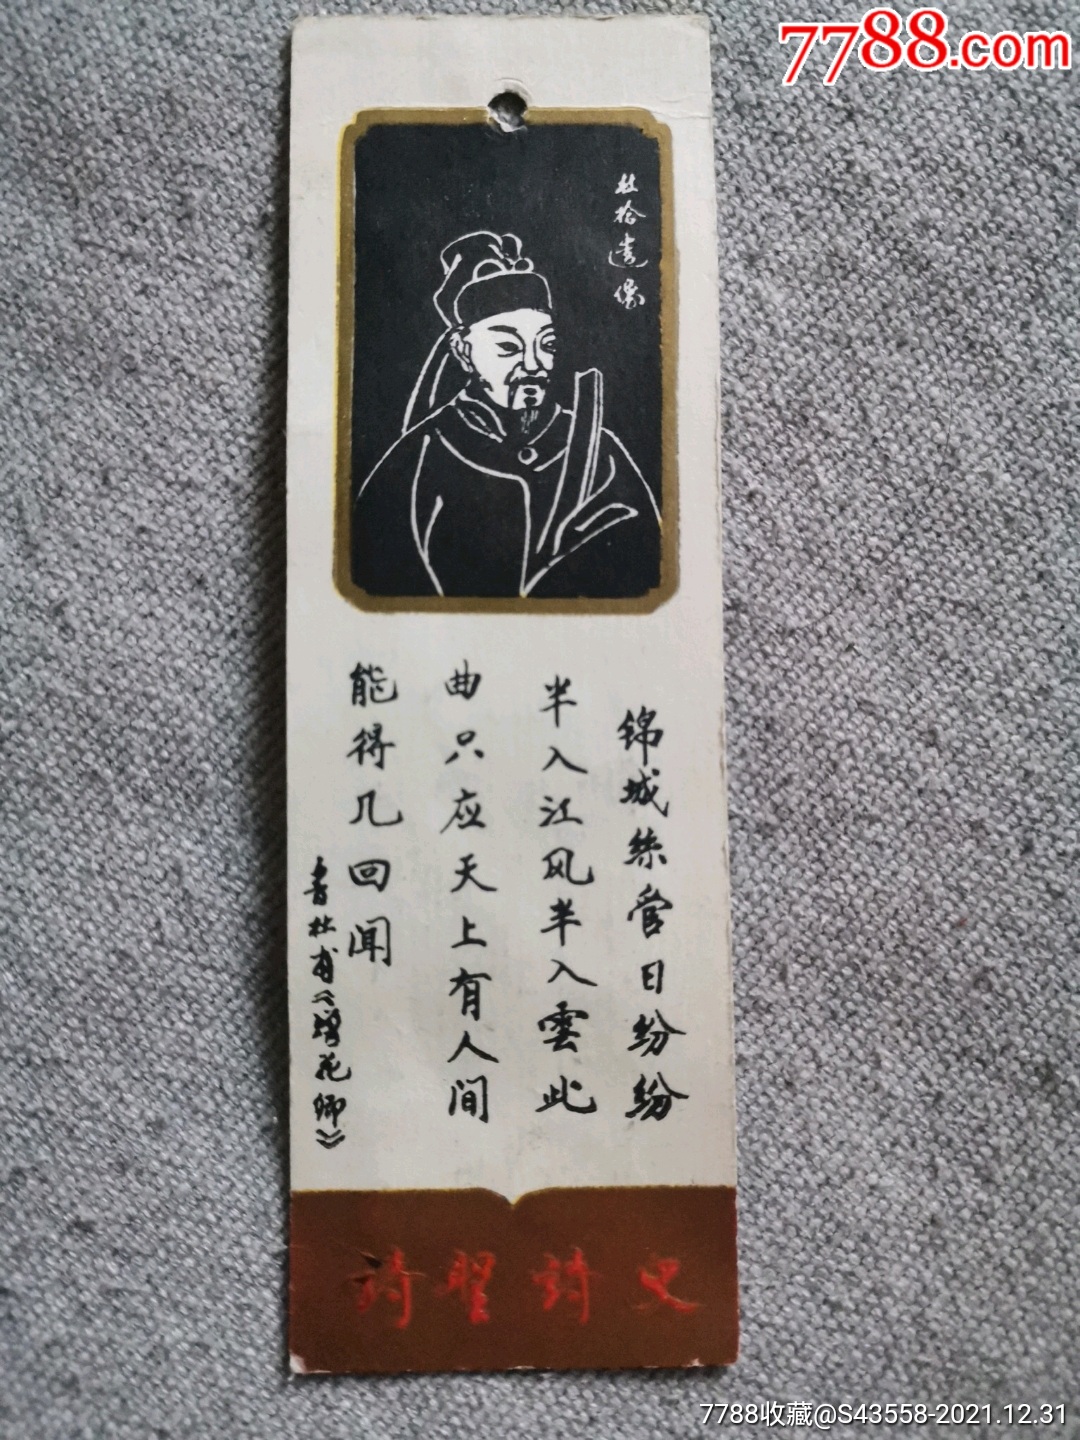 7788.com
杜拾遺像
錦城絲管日纷纷
半入江风半入雲此
曲只应天上有人间
能得几回闻
书杜甫《赠花卿》
詩聖詩史
7788收藏@S43558-2021.12.31